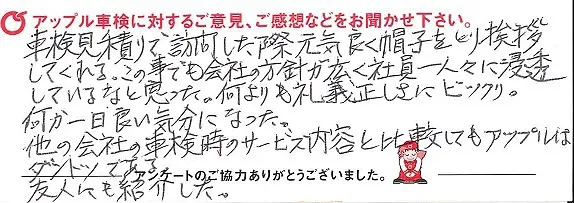 アップル車検に対するご意見、ご感想などをお聞かせ下さい。
車検見積りで訪問した際元気良く帽子をとり挨拶
してくれる。この事でも会社の方針が広く社員一人々に浸透
しているなと思った。何よりも礼義正しさにビックリ。
何か一日良い気分になった。
他の会社の車検時のサービス内容と比較してもアップルは
ダントツである。
友人にも紹介した。
アンケートのご協力ありがとうございました。